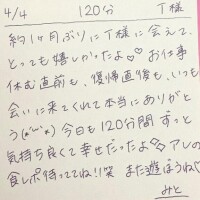 4/4 120分 T様
約1ヶ月ぶりにT様に会えて、
とっても嬉しかったよ♡♡お仕事
休む直前も、復帰直後も、いつも
会いに来てくれて本当にありがと
う(*˘︶˘*)今日も120分間ずっと
気持ち良くて幸せだったよ♡♡アレの
食レポ待っててね!!笑 また遊ぼうね♡
みと